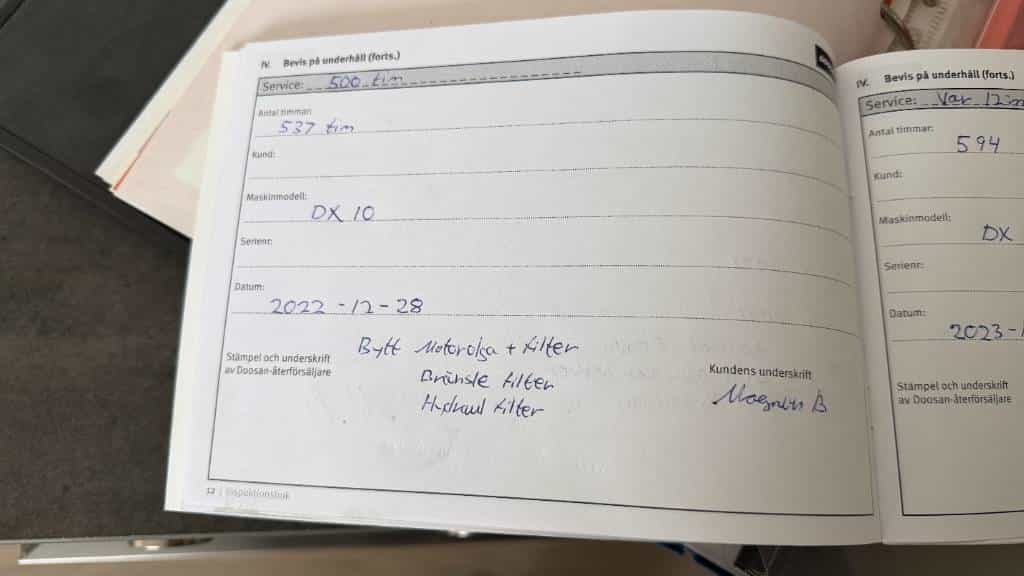 IV. Bevis på underhåll (forts.)
Service: 500 tim
Antal timmar:
537 tim
Kund:
Maskinmodell:
DX 10
Serienr:
Datum:
2022-12-28
Bytt Motorolja + Filter
Bränsle Filter
Hydraul Filter
Stämpel och underskrift
av Doosan-återförsäljare
Kundens underskrift
Magnus B
12 | Inspektionsbok
IV. Bevis på underhåll (forts.)
Service: Var 12
Antal timmar:
594
Kund:
Maskinmodell:
DX
Serienr:
Datum:
2023-1
Stämpel och underskrift
av Doosan-återförsäljare